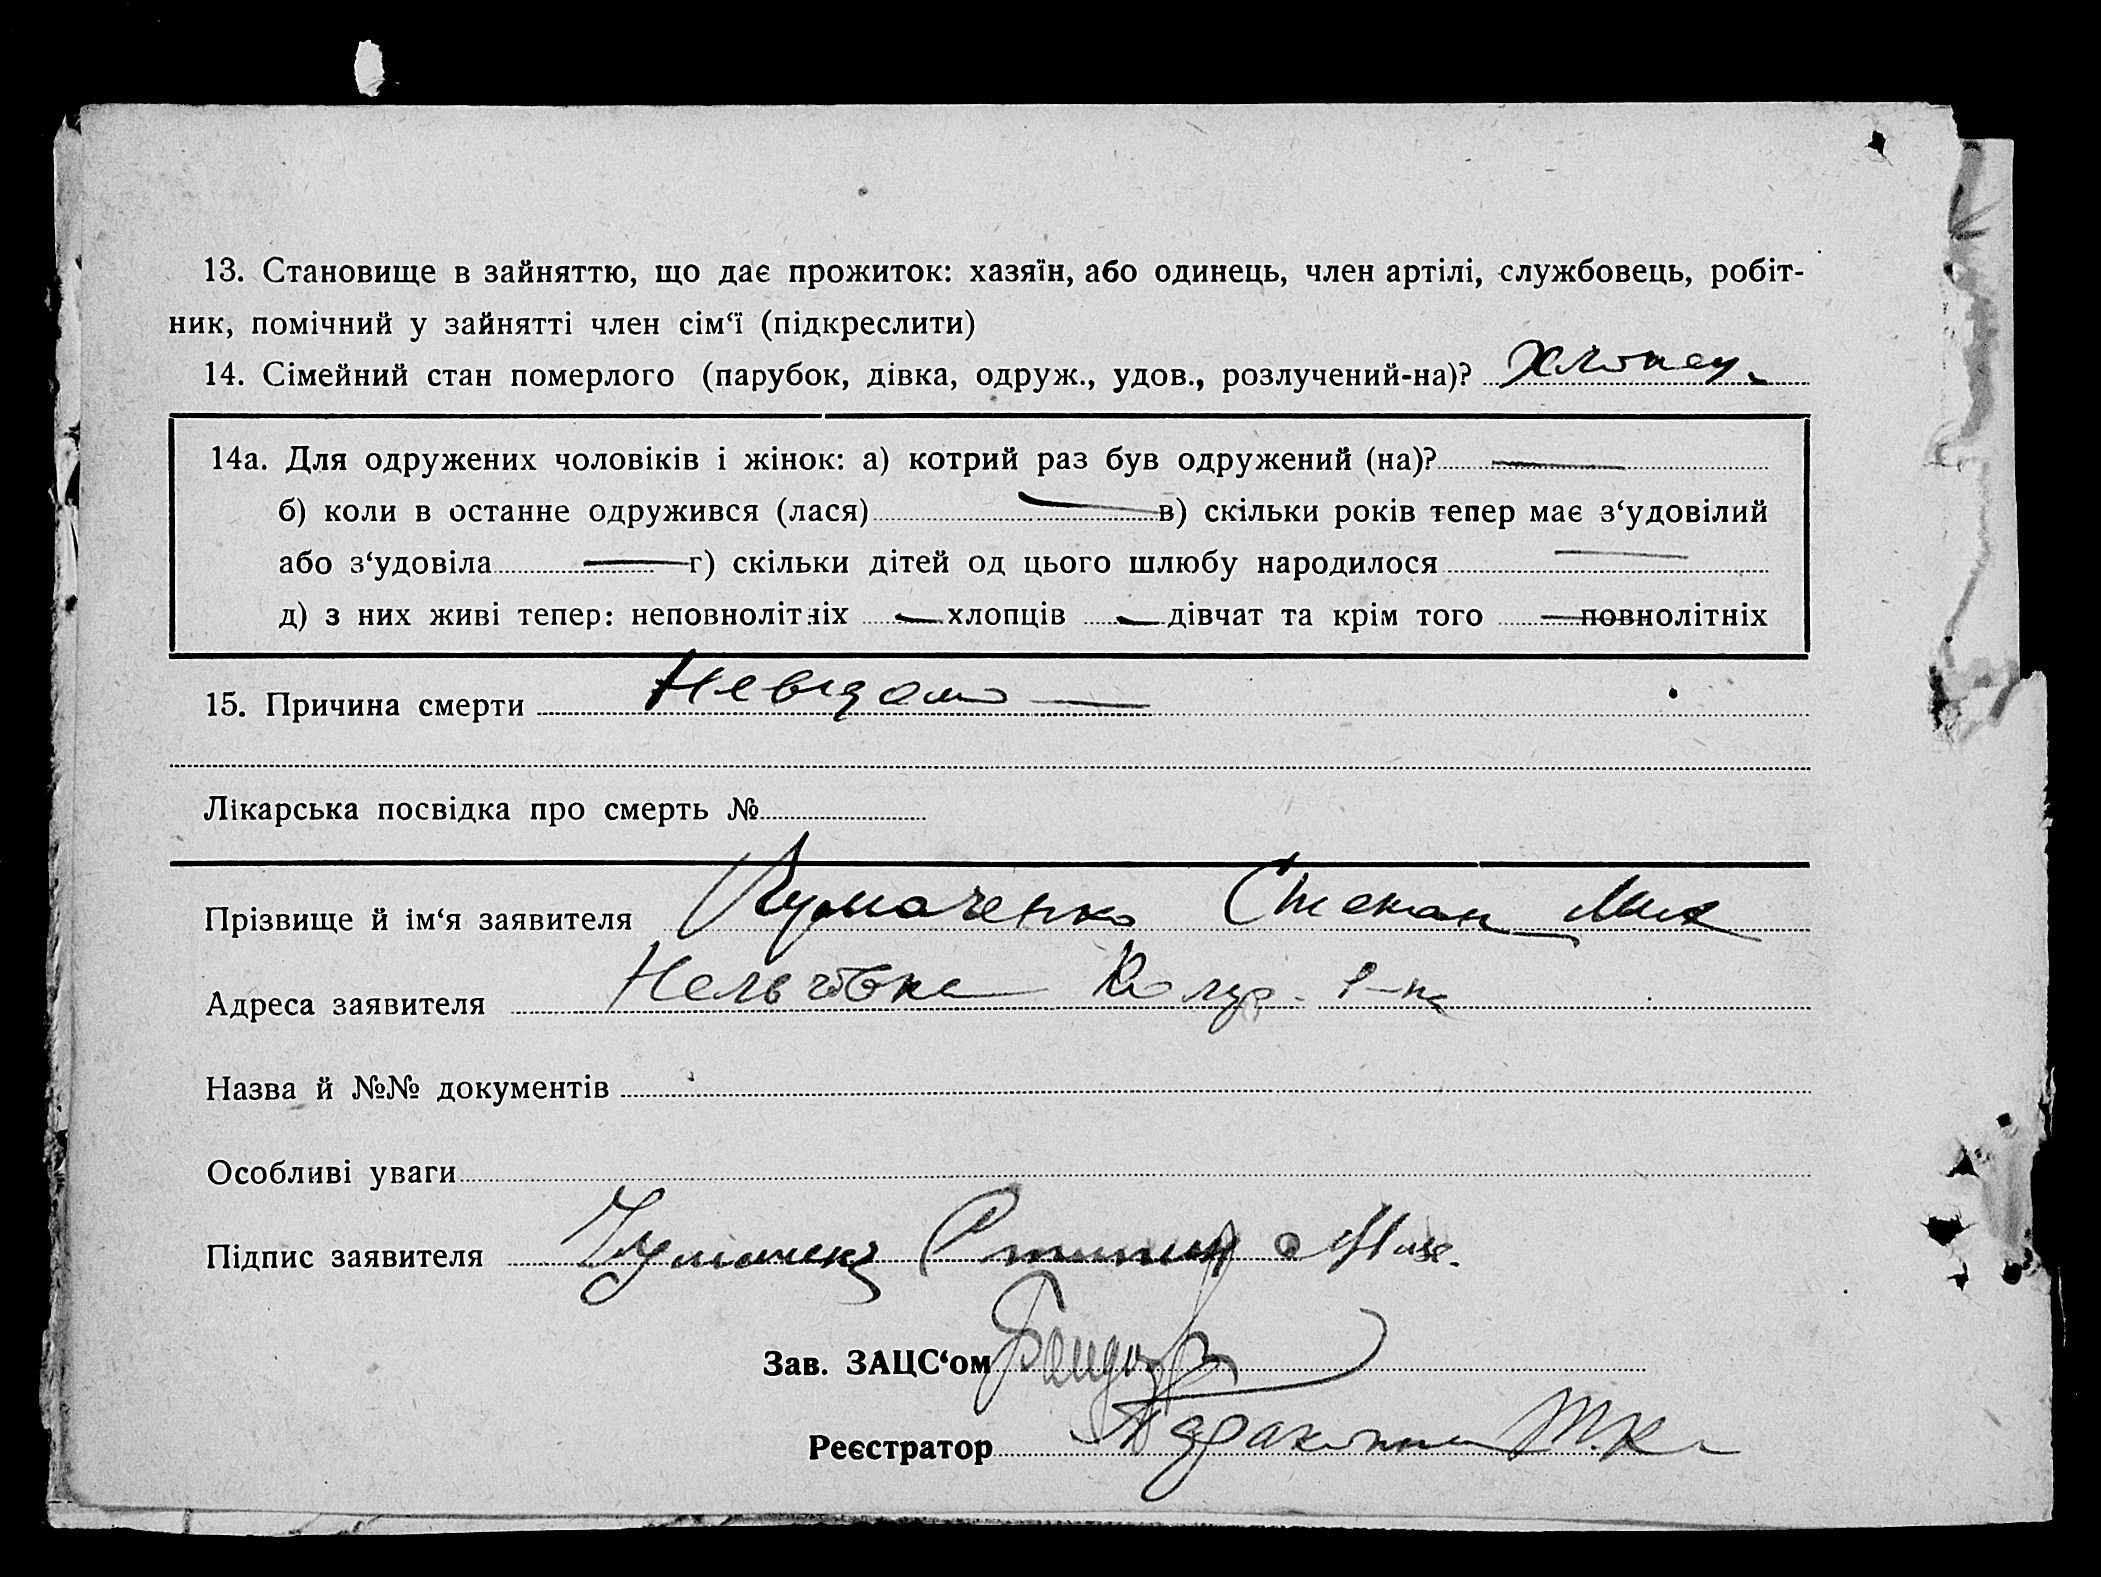 13. Становище в зайняттю, що дає прожиток: хазяїн, або одинець, член артілі, службовець, робіт-
ник, помічний у зайнятті член сім‘ї (підкреслити)
14. Сімейний стан померлого (парубок, дівка, одруж., удов., розлучений-на)? Хлопец.
14а. Для одружених чоловіків і жінок: а) котрий раз був одружений (на)? —
б) коли в останне одружився (лася) — в) скільки років тепер має з‘удовілий
або з‘удовіла — г) скільки дітей од цього шлюбу народилося —
д) з них живі тепер: неповнолітніх — хлопців — дівчат та крім того — повнолітніх
15. Причина смерти Невідомо —
Лікарська посвідка про смерть №
Прізвище й ім‘я заявителя Степан Мих
Адреса заявителя р-на
Назва й №№ документів
Особливі уваги
Підпис заявителя
Зав. ЗАЦС‘ом
Реєстратор